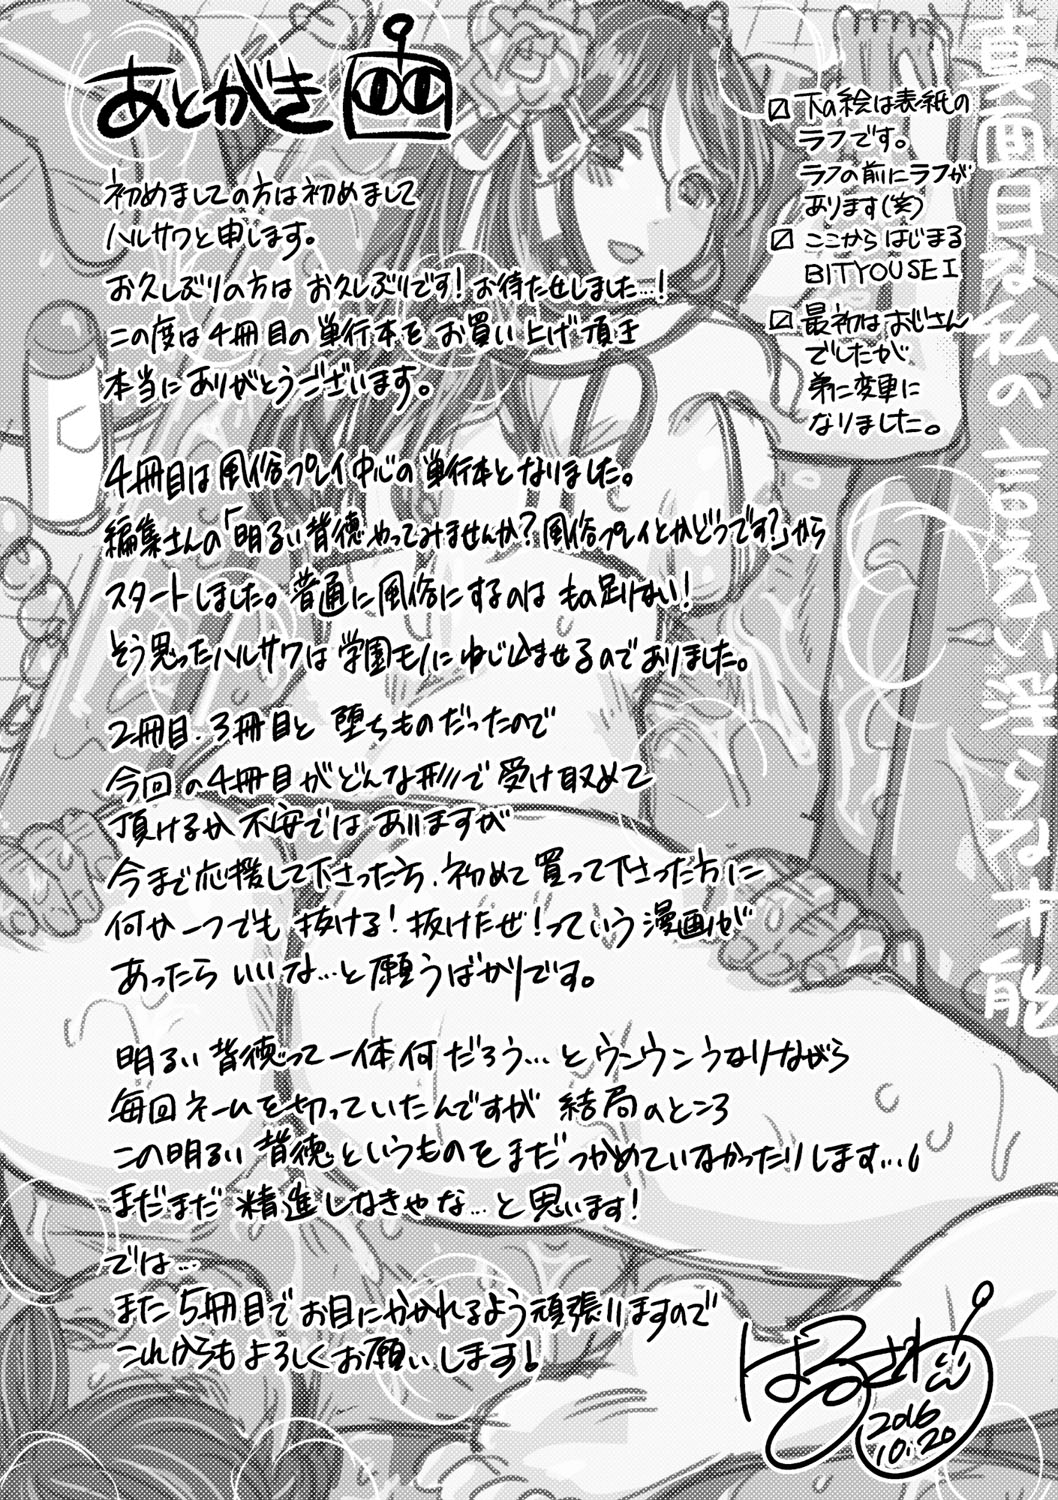 あとがき
初めましての方は初めまして
ハルサワと申します。
お久しぶりの方は お久しぶりです！お待たせしました…！
この度は4冊目の単行本を お買い上げ頂き
本当にありがとうございます。
4冊目は風俗プレイ中心の単行本となりました。
編集さんの「明るい背徳やってみませんか？風俗プレイとかどうです？」から
スタートしました。普通に風俗にするのは もの足りない！
そう思ったハルサワは 学園モノに ねじ込ませるのでありました。
2冊目、3冊目と 堕ちものだったので
今回の4冊目がどんな形で 受け取めて
頂けるか 不安では ありますが
今まで応援して下さった方、初めて買って下さった方に
何か一つでも 抜ける！抜けたぜ！っていう漫画が
あったら いいな…と願うばかりです。
明るい 背徳って一体何だろう…とウンウンうなりながら
毎回ネームを切っていたんですが 結局のところ
この明るい 背徳というものをまだつかめていなかったりします…。
まだまだ 精進しなきゃな…と思います！
では…
また 5冊目で お目にかかれるよう頑張りますので
これからも よろしくお願いします！
下の絵は表紙の
ラフです。
ラフの前にラフが
あります(笑)
ここから はじまる
BITYOUSEI
最初はおじさん
でしたが
弟に変更に
なりました。
真面目な私の言えない淫らな才能
はるさわ
2016
10.20